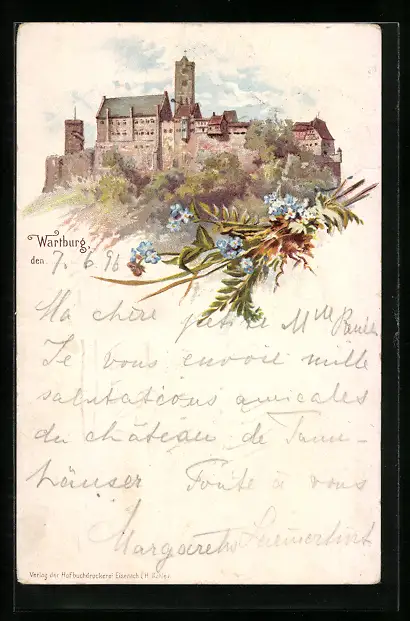 Wartburg,
den 7. 6. 96
Ma chère petite Mlle
Je vous envoie mille
salutations amicales
du château de Tann-
häuser Toute à vous
Margarethe
Verlag der Hofbuchdruckerei Eisenach H. Kahle